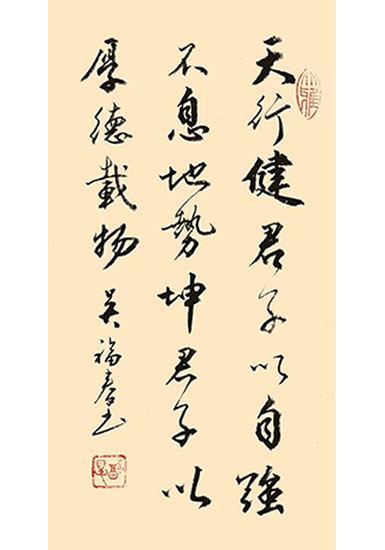 天行健君子以自強
不息地勢坤君子以
厚德載物 吴福春书